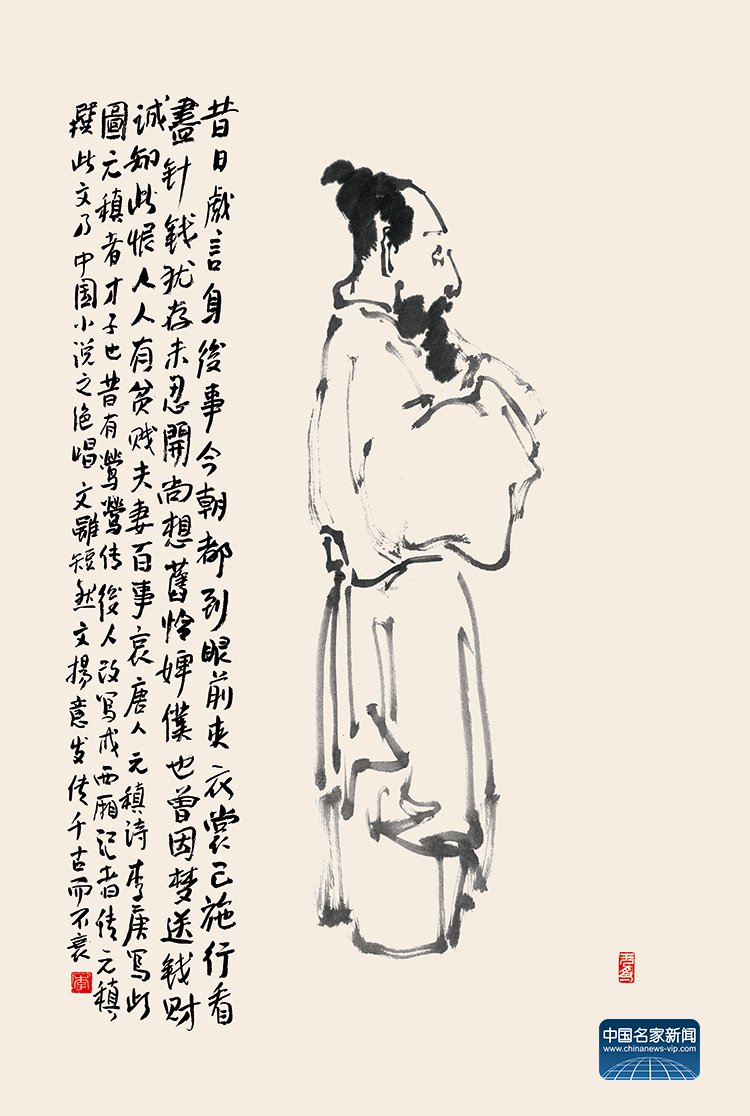 昔日戲言身後事今朝都到眼前來衣裳已施行看
盡针钱犹存未忍開尚想舊怜婢僕也曾因梦送钱财
诚知此恨人人有贫贱夫妻百事哀唐人元稹诗李庚写此
圖元稹者才子也昔有鶯鶯传後人改写成西厢记者传元稹
撰此文乃中国小说之绝唱文雖短然文揚意发传千古而不衰
李
中国名家新闻
www.chinanews-vip.com